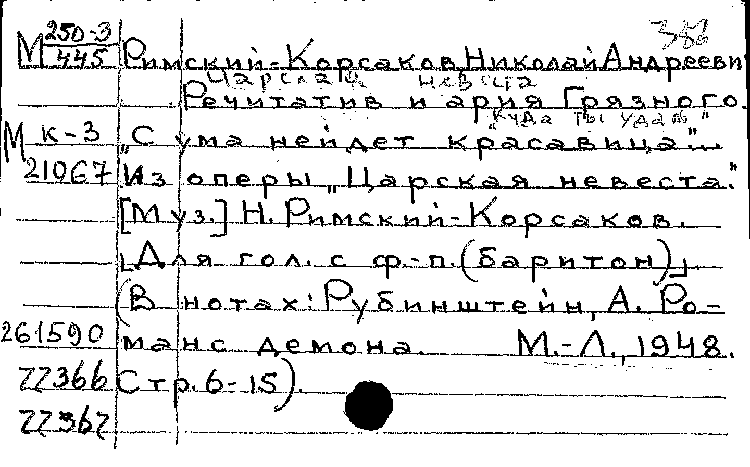 М 250-3 386
445 Римский-Корсаков, Николай Андрееви
Царская невеста
Речитатив и ария Грязного.
"Куда ты удаль"
М к-3 „С ума нейдет красавица"...
21067 Из оперы „Царская невеста."
[Муз.] Н. Римский-Корсаков.
[Для гол. с ф.-п. (баритон)]
(В нотах: Рубинштейн, А. Ро-
261590 манс демона. М.-Л., 1948.
22366 Стр. 6-15).
22367